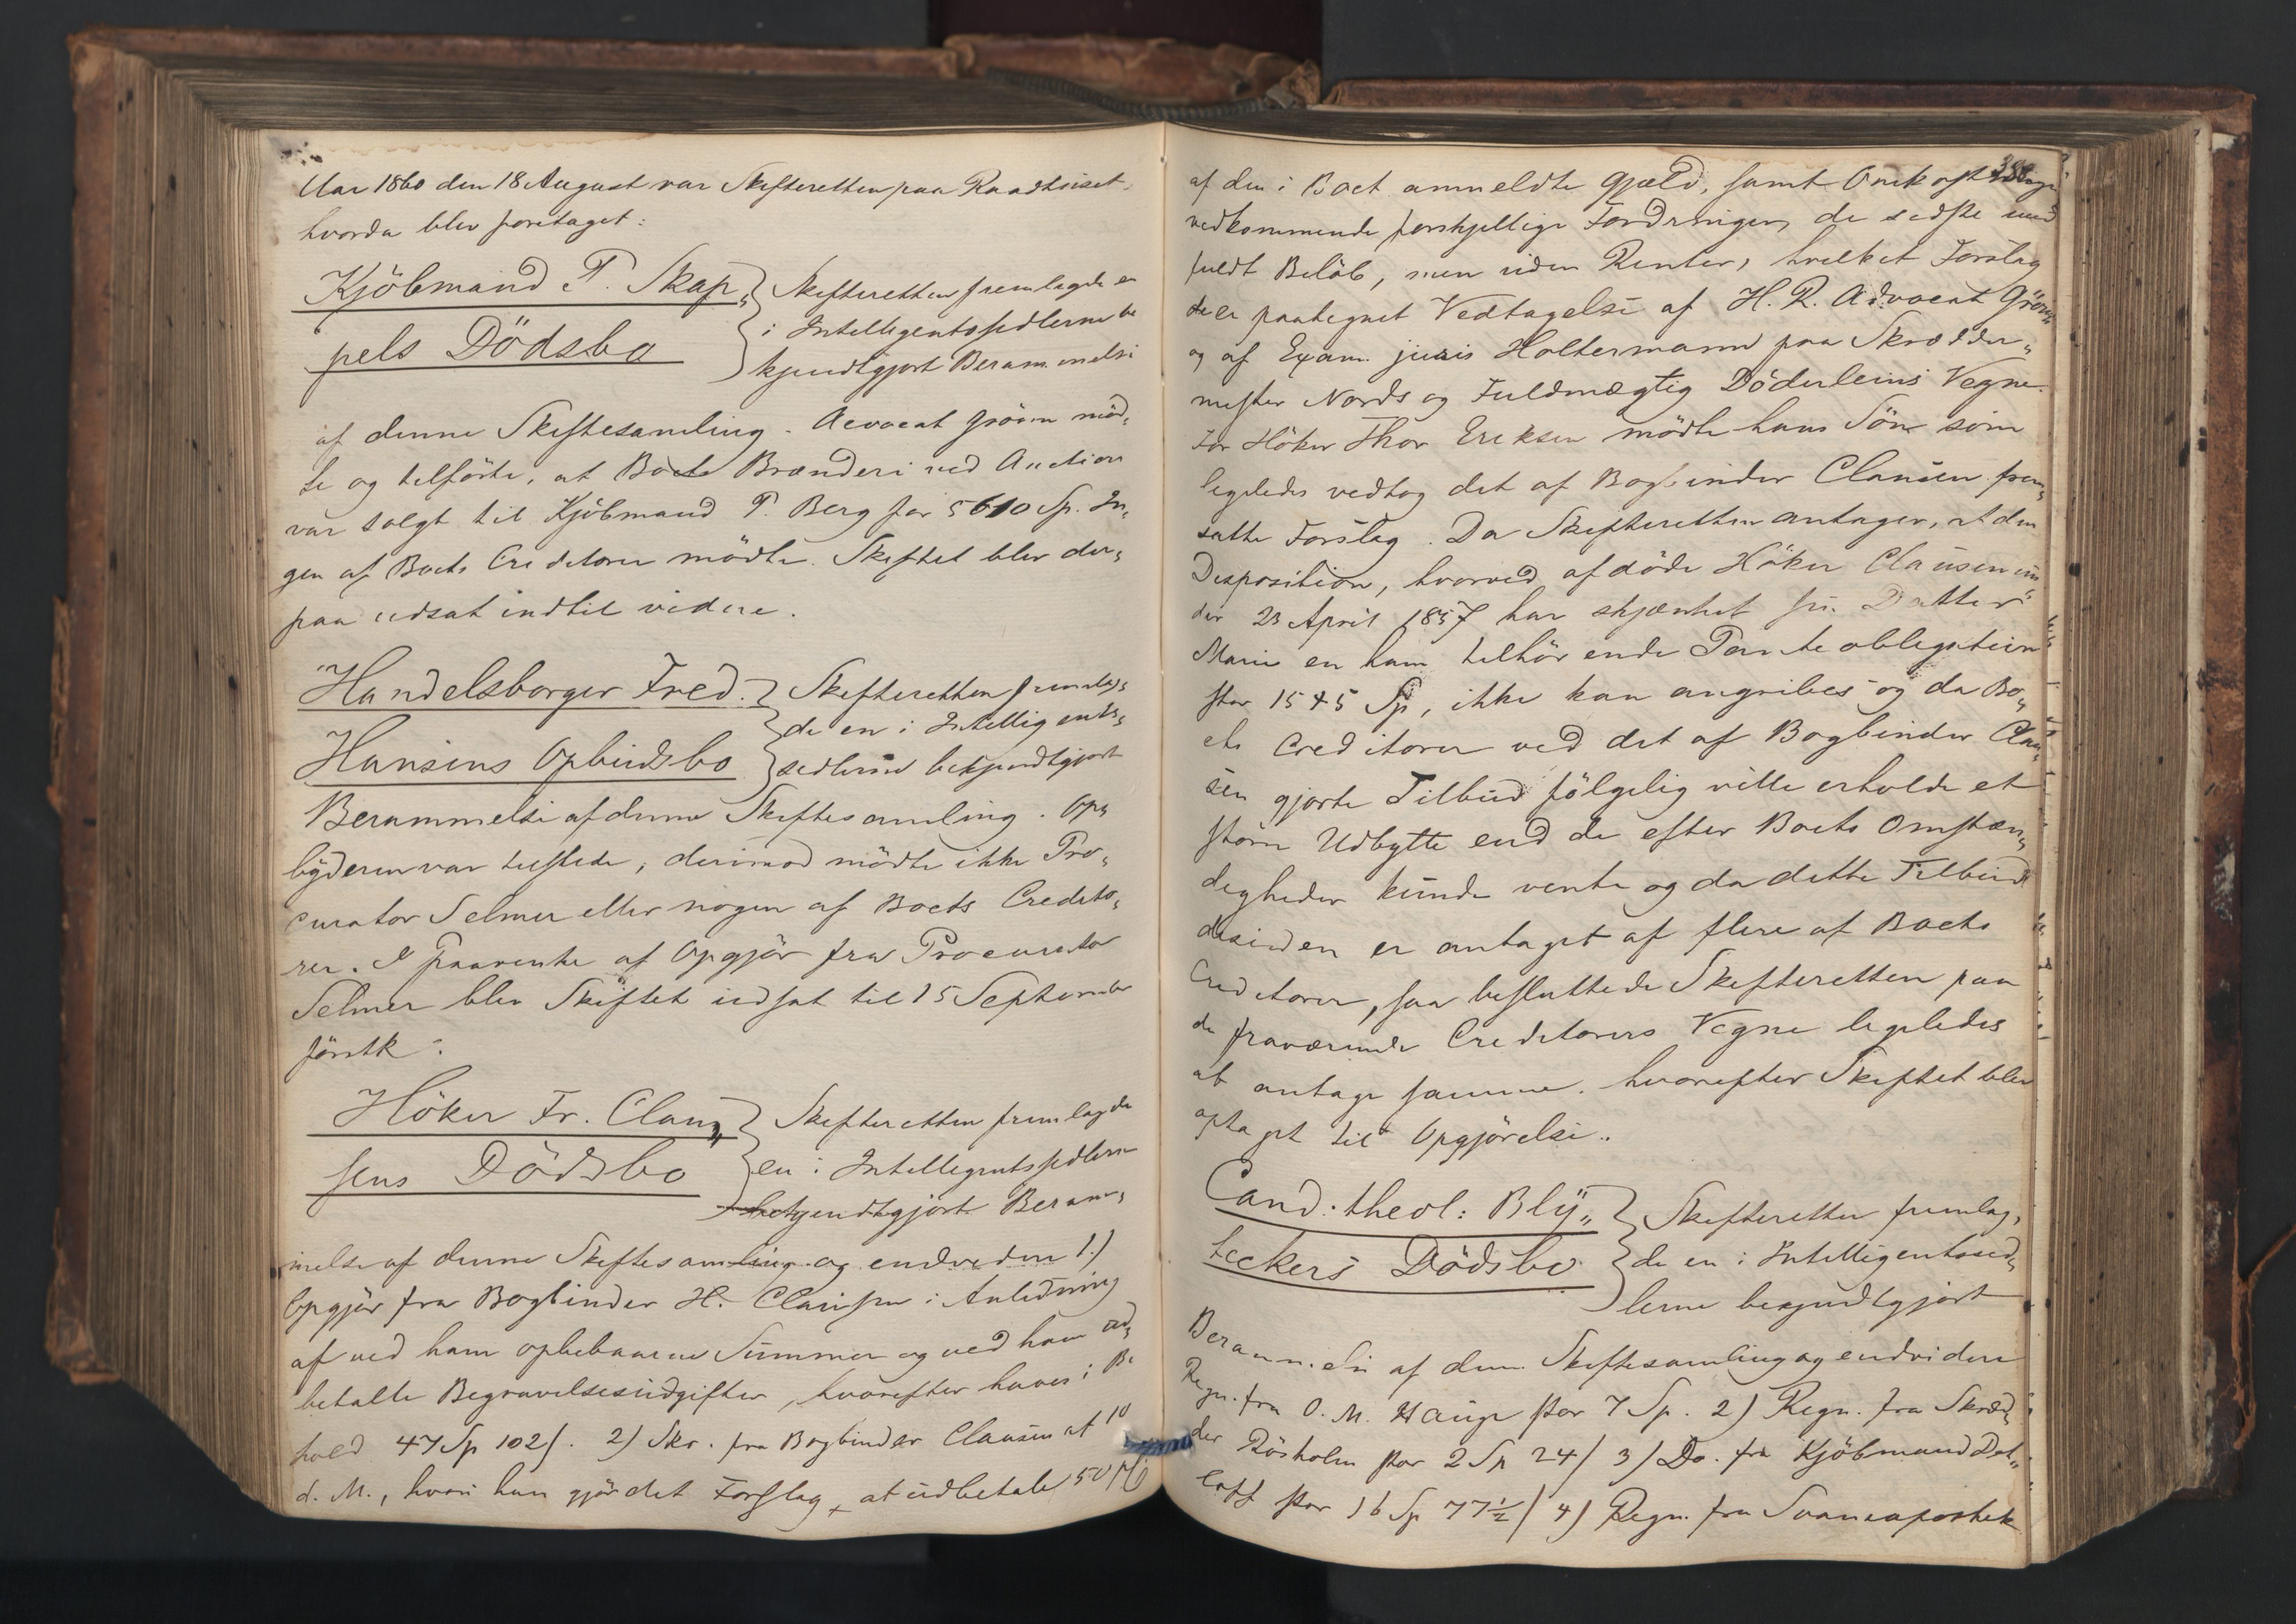 Aar 1860 den 18 August var Skifteretten paa Raadhuset,
hvorda blev foretaget:
Kjöbmand P. Skap„
pels Dödsbo
Skifteretten fremlagde en
i Intelligentssedlerne be
kjendtgjort Berammelse
af denne Skiftesamling. Advocat Gröom möd„
te og tilförte, at Boets Brænderi ved Auction
var solgt til Kjöbmand P. Berg for 5610 Sp. In„
gen af Boets Creditorer mödte. Skiftet blev der„
paa udsat indtil videre.
Handelsborger Fred.
Hansens Opbudsbo
Skifteretten fremlag„
de en i Intelligents„
sedlerne bekjendtgjort
Berammelse af denne Skiftesamling. Op„
byderen var tilstede, derimod mödte ikke Pro„
curator Selmer eller nogen af Boets Credito„
rer. I Paavente af Opgjör fra Procurator
Selmer blev Skiftet udsat til 15 September
förstk.
Höker Fr. Clau„
sens Dödsbo
Skifteretten fremlagde
en i Intelligentssedlerne
bekjendtgjort Beram„
melse af denne Skiftesamling og endvidere 1)
Opgjör fra Bogbinder H. Clausen i Anledning
af ved ham opbebaarne Summer og ved ham ud„
betalte Begravelsesudgifter, hvorefter haves i Be
hold 47 Sp 102/. 2) Skr. fra Bogbinder Clausen af 10
d. M., hvori han gjör det Forslag, at udbetale 50 %
388
af den i Boet anmeldte Gjæld, samt Omkostninger
vedkommende forskjellige Fordringer, de sidste med
fuldt Belöb, men uden Renter, hvilket Forslag
der er paategnet Vedtagelse af H. R. Advocat Gröom
og af Exam. juris Holtermann paa Skrædder„
mester Nords og Fuldmægtig Döderleins Vegne.
For Höker Thor Ericksen mödte hans Sön som
ligeledes vedtog det af Bogbinder Clausen frem„
satte Forslag. Da Skifteretten antager, at den
Disposition, hvorved afdöde Höker Clausen un
der 23 April 1857 har skjænket sin Datter
Marie en ham tilhörende Panteobligation
stor 1545 Sp, ikke kan angribes og da Bo„
ets Creditorer ved det af Bogbinder Clau„
sen gjorte Tilbud fölgelig ville erholde et
större Udbytte end de efter Boets Omstæn„
digheder kunde vente og da dette Tilbud
desuden er antaget af flere af Boets
Creditorer, saa besluttede Skifteretten paa
de fraværende Creditorers Vegne ligeledes
at antage samme, hvorefter Skiftet blev
optaget til Opgjörelse.
Cand. theol: Bly„
teckers Dödsbo
Skifteretten fremlag„
de en i Intelligentssed„
lerne bekjendtgjort
Berammelse af denne Skiftesamling og endvidere
Regn. fra O. M. Hauge stor 7 Sp. 2) Regn. fra Skræd„
der Rösholm stor 2 Sp 24/ 3) Do. fra Kjöbmand Det„
loff stor 16 Sp 77½/ 4) Regn. fra Svaneapothek